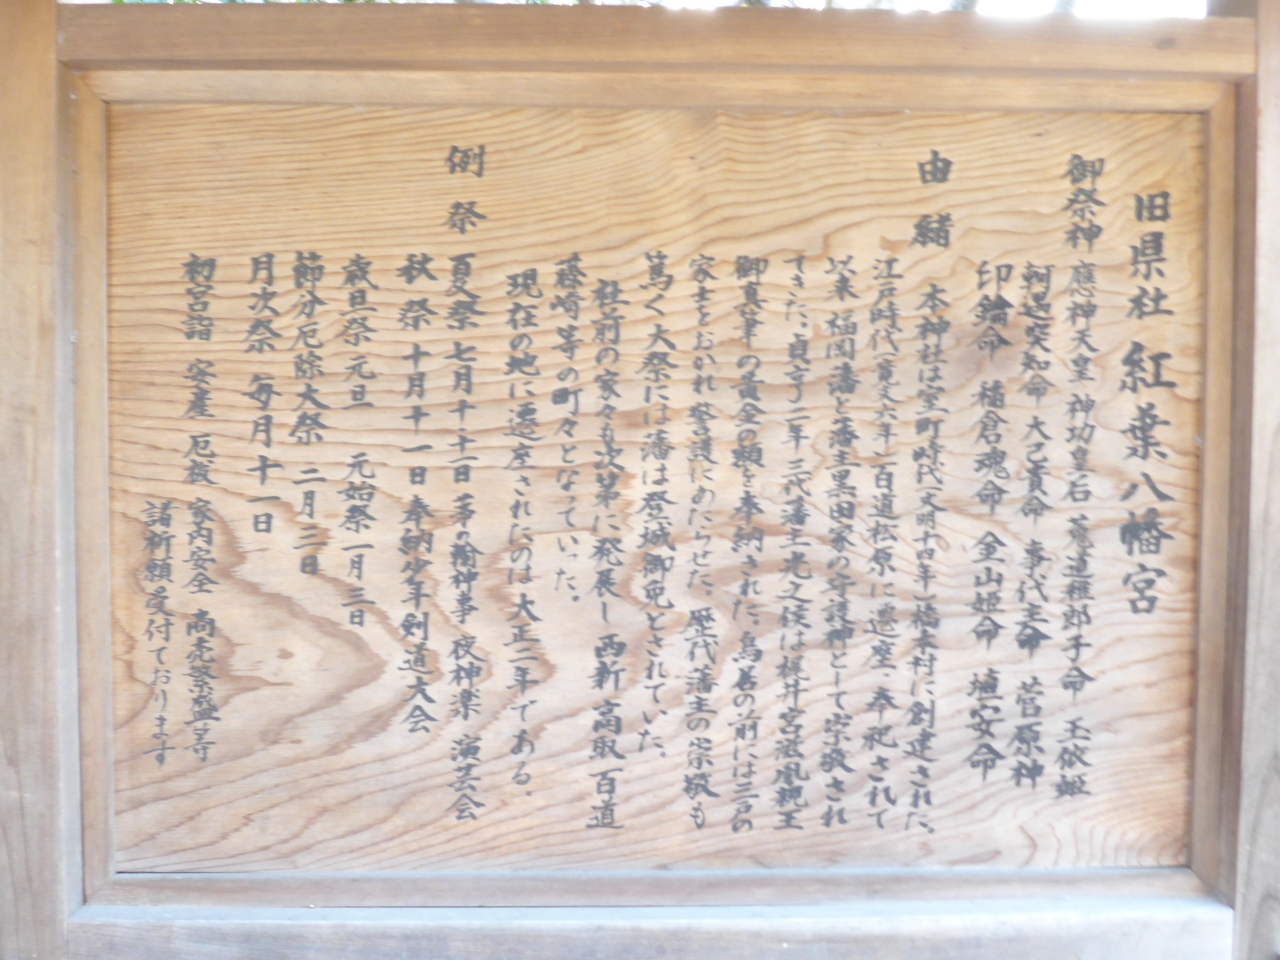 旧県社 紅葉八幡宮
御祭神 應神天皇 神功皇后 菟道稚郎子命 玉依姫
軻遇突知命 大己貴命 事代主命 菅原神
印鑰命 稲倉魂命 金山姫命 埴安命
由緒 本神社は室町時代(文明十四年)橋本村に創建された。
江戸時代(寛文六年)百道松原に遷座、奉祀されて
以来 福岡藩と藩主黒田家の守護神として崇敬され
てきた。貞享二年 三代藩主光之候は梶井宮慈胤親王
御真筆の黄金の額を奉納された。鳥居の前には三戸の
家士をおかれ警護にあたらせた。歴代藩主の崇敬も
篤く大祭には藩は登城御免とされていた。
社前の家々も次第に発展し 西新 高取 百道
藤崎等の町々となっていった。
現在の地に遷座されたのは大正二年である。
例祭 夏祭 七月十十一日 茅の輪神事 夜神楽 演芸会
秋祭 十月十一日 奉納少年剣道大会
歳旦祭 元旦 元始祭 一月三日
節分厄除大祭 二月三日
月次祭 毎月十一日
初宮詣 安産 厄祓 家内安全 商売繁盛等
諸祈願 受付ております